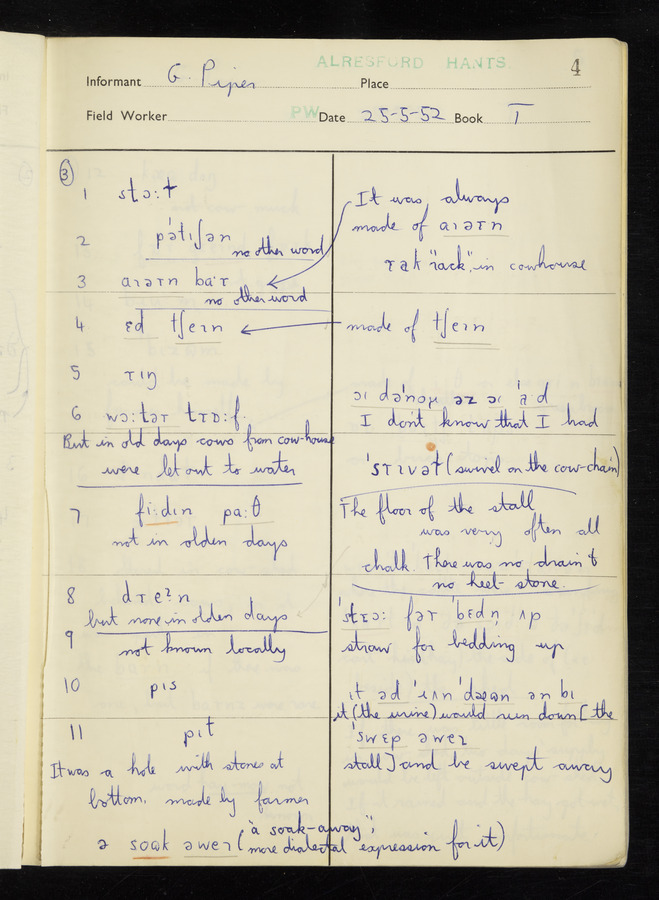 ALRESFORD HANTS
4
Informant G. Piper Place
Field Worker PW Date 25-5-52 Book I
3
1 stɔ:ɫ
2 pəˈtɪʃən
no other word
3 aɪəɾn ba·ɾ
no other word
4 ɛd tʃeɪn
5 ɾɪŋ
6 wɔ:tər tɾɒ:f.
But in old days cows from cow-house
were let out to water
7 fi:dɪn pa:θ
not in olden days
8 dɾeʔn
but none in olden days
9 not known locally
10 pɪs
11 pɪt
It was a hole with stones at
bottom, made by farmer
ə soək əweɪ ("a soak-away";
more dialectal expression for it)
It was always
made of aɪəɾn
ɾak "rack", in cowhouse
made of tʃeɪn
I don't know that I had
(swivel on the cow-chain)
The floor of the stall
was very often all
chalk. There was no drain &
no heel-stone.
ˈstɾɔ: fəɾ ˈbɛdn ʌp
straw for bedding up
it (the urine) would run down [the
ˈswɛp əweɪ
stall] and be swept away